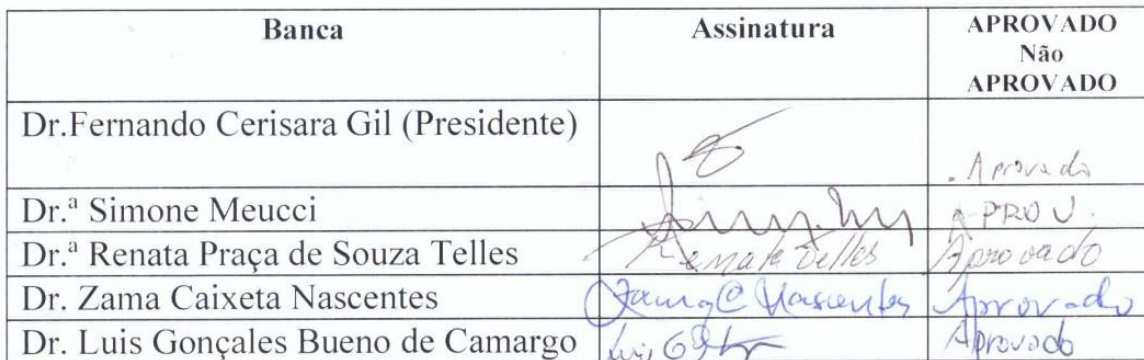 Banca Assinatura APROVADO
Não
APROVADO
Dr.Fernando Cerisara Gil (Presidente) . Aprovado
Dr.ª Simone Meucci APROV.
Dr.ª Renata Praça de Souza Telles Renata Telles Aprovado
Dr. Zama Caixeta Nascentes Zama C Nascentes Aprovado
Dr. Luis Gonçales Bueno de Camargo Aprovado